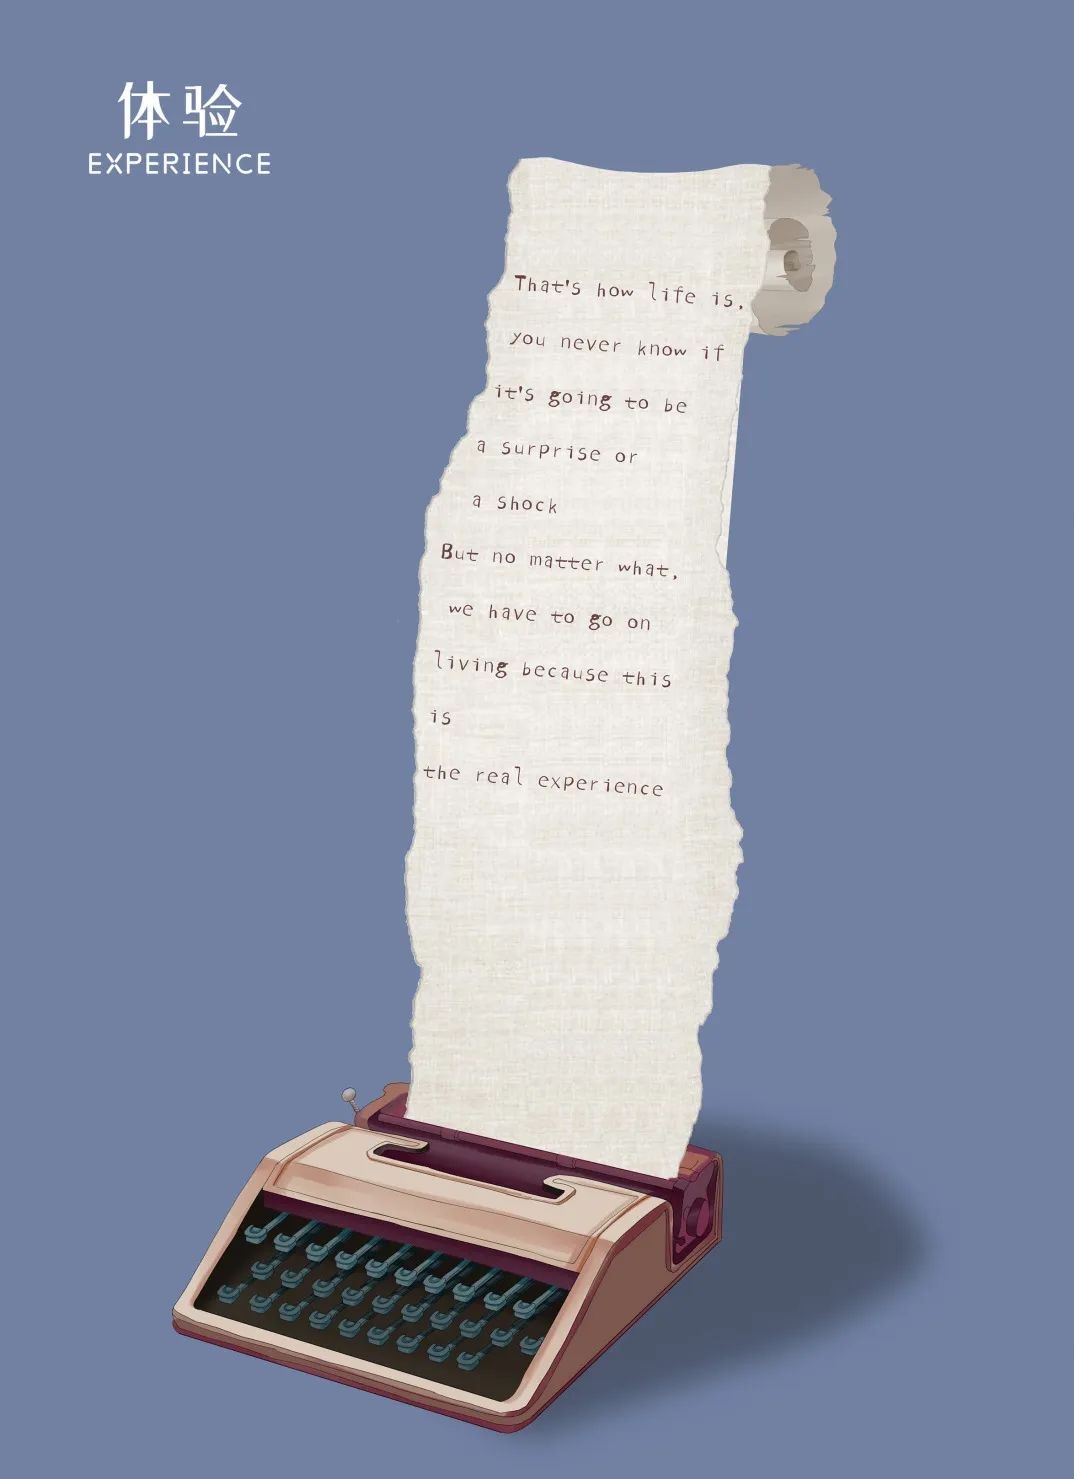 体验
EXPERIENCE
That's how life is,
you never know if
it's going to be
a surprise or
a shock
But no matter what,
we have to go on
living because this
is
the real experience